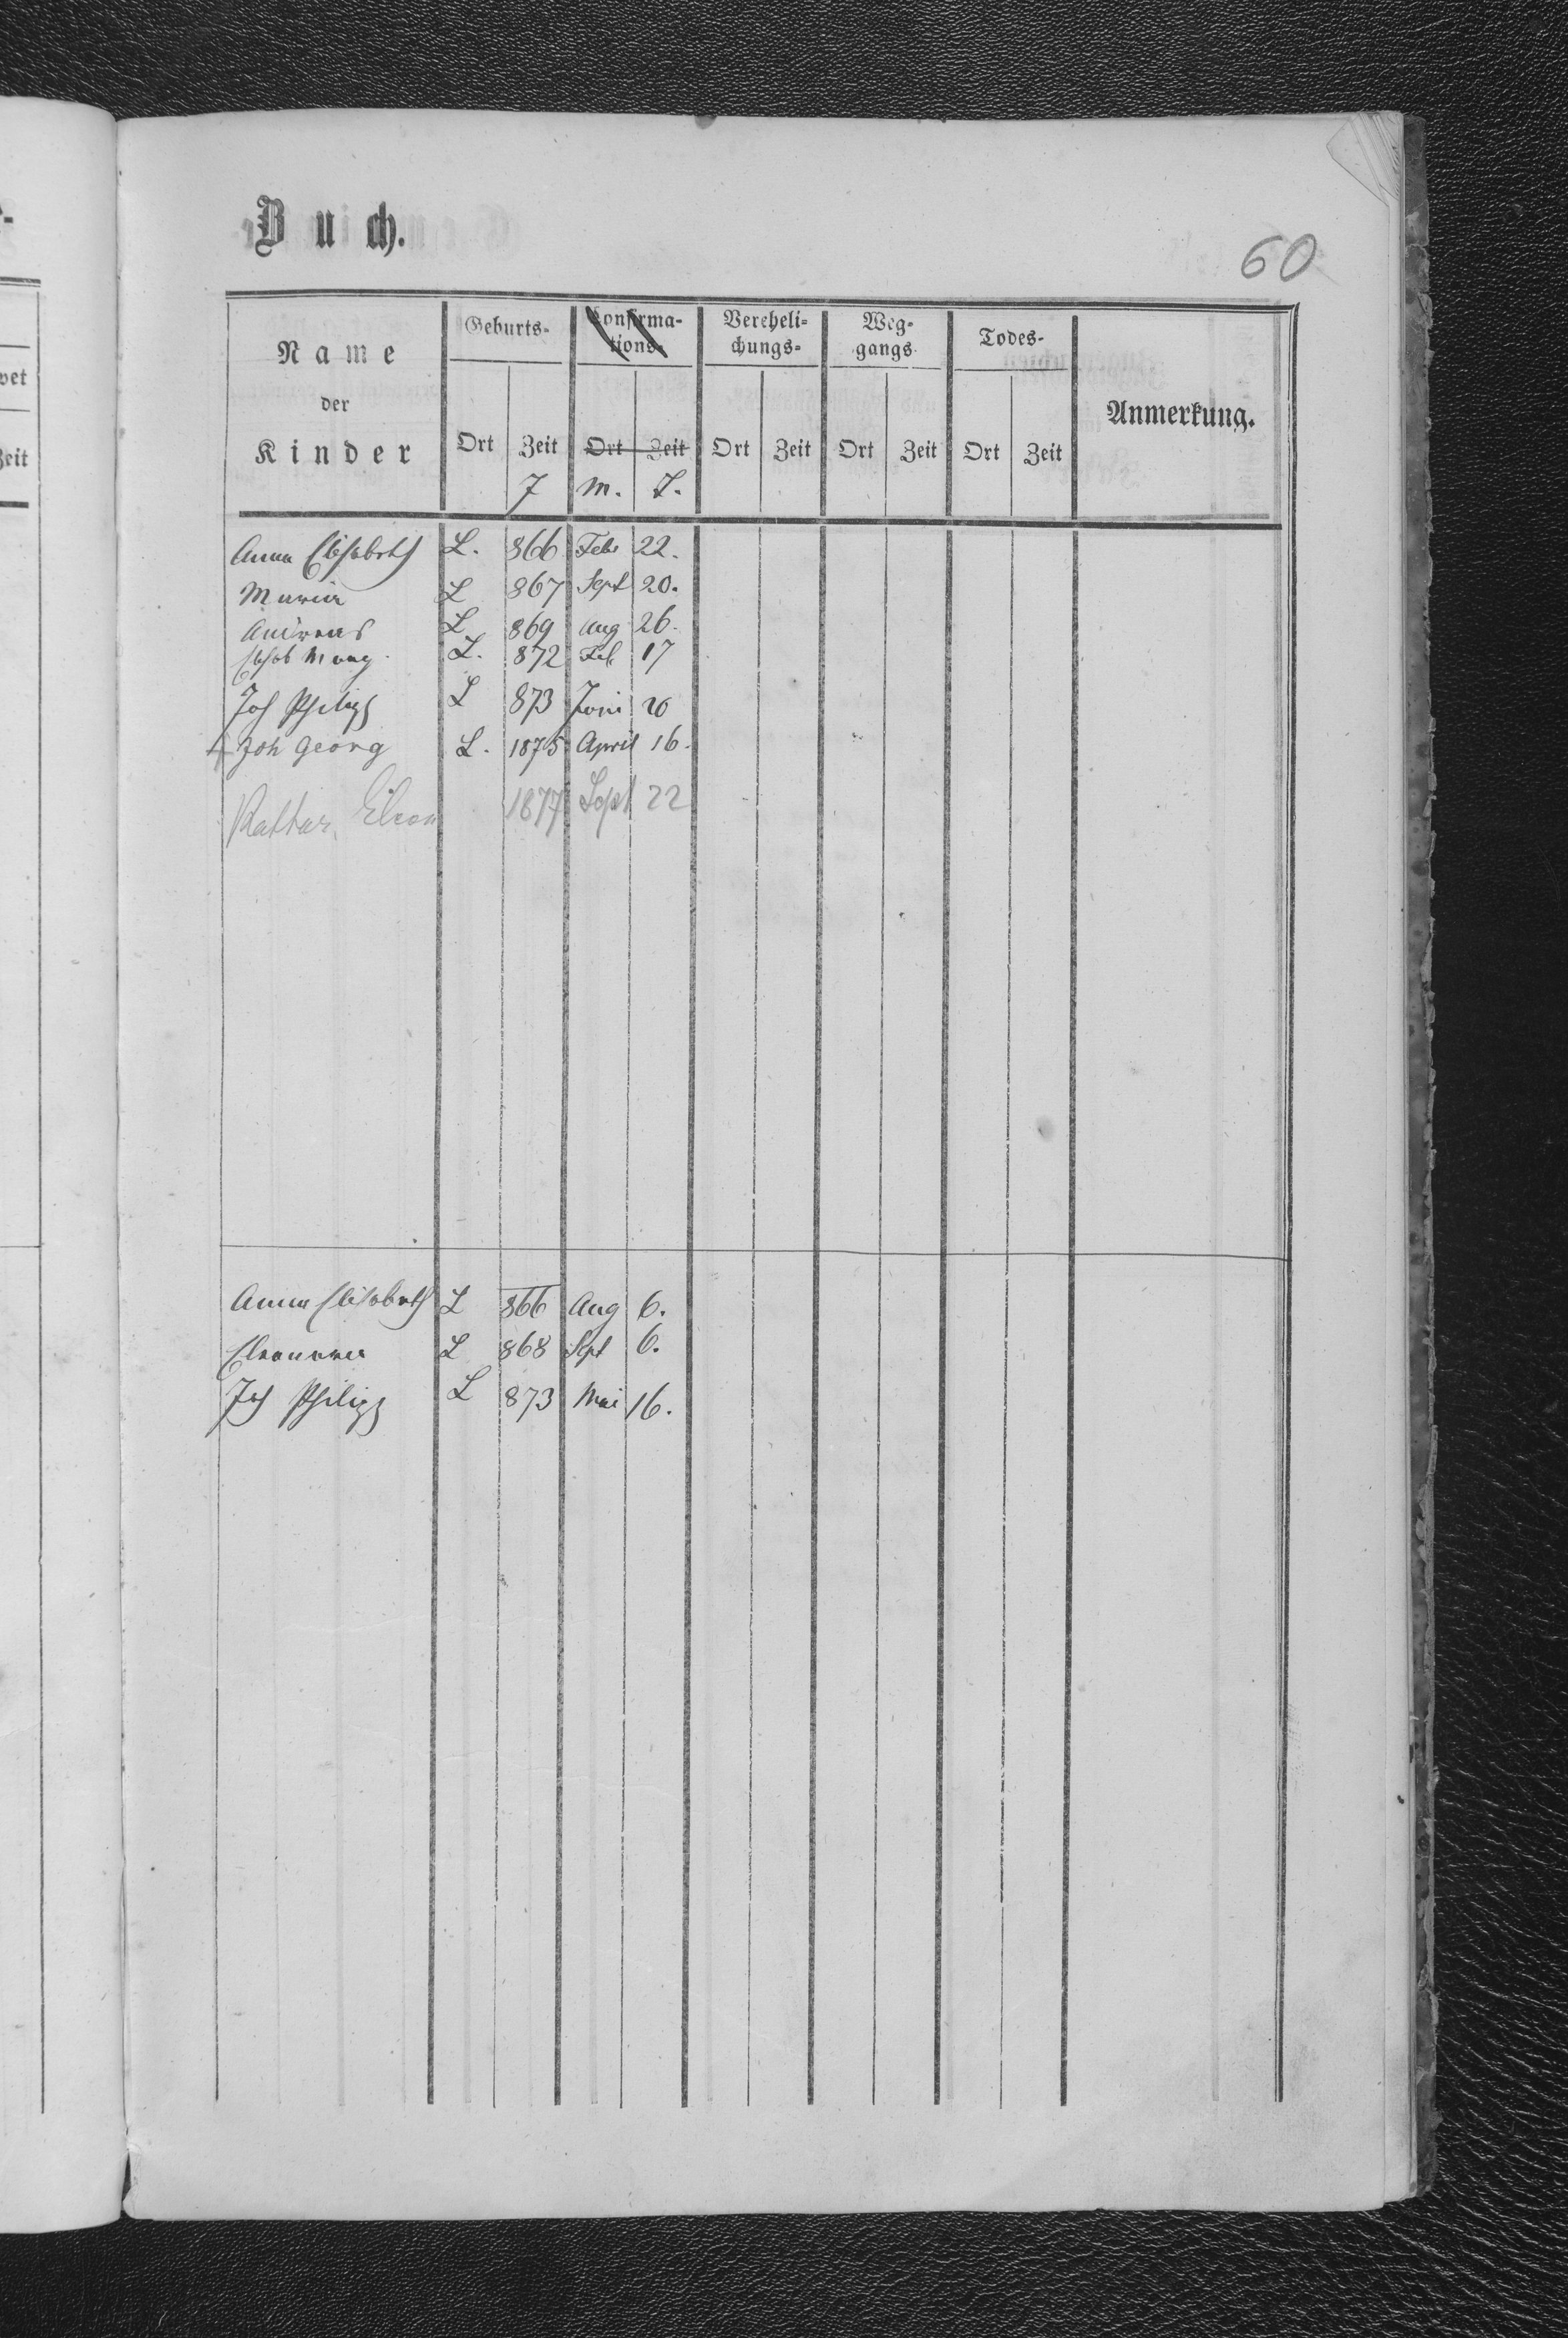 Buch.
60
Name der Kinder
Geburts-
Konfirma-tions-
Vereheli-chungs-
Weg-gangs
Todes-
Anmerkung.
Ort Zeit Ort Zeit Ort Zeit Ort Zeit Ort Zeit
J M. T.
Anna Elisabeth L. 866 Febr 22.
Maria L 867 Sept 20.
Andreas L 869 Aug 26.
Elisab Marg. L. 872 Feb 17
Joh Philipp L 873 Juni 20
+ Joh Georg L. 1875 April 16.
Kathar. Eleon 1877 Sept 22
Anna Elisabeth L 866 Aug 6.
Eleonora L 868 Sept 6.
Joh Philipp L 873 Mai 16.
vet
Zeit